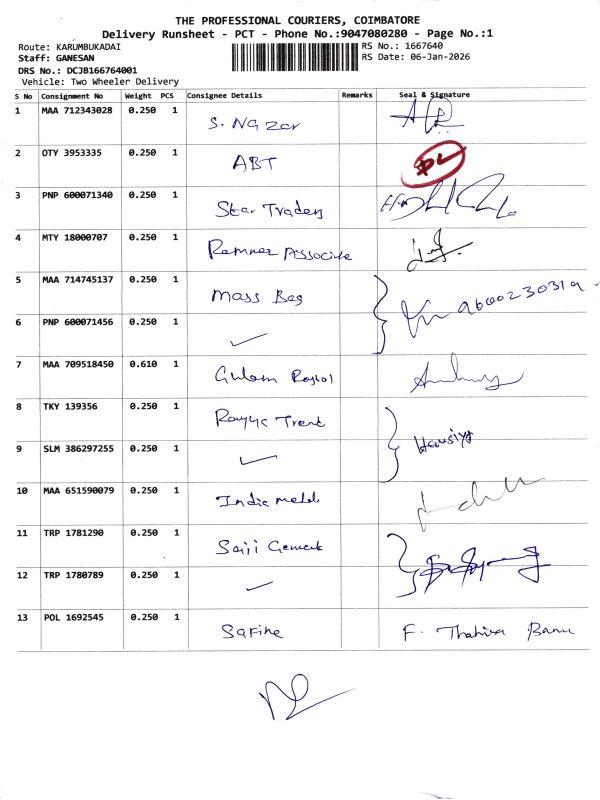 THE PROFESSIONAL COURIERS, COIMBATORE
Delivery Runsheet - PCT - Phone No.:9047080280 - Page No.:1
Route: KARUMBUKADAI RS No.: 1667640
Staff: GANESAN RS Date: 06-Jan-2026
DRS No.: DCJB166764001
Vehicle: Two Wheeler Delivery
S No Consignment No Weight PCS Consignee Details Remarks Seal & Signature
1 MAA 712343028 0.250 1 S. Nazar
2 OTY 3953335 0.250 1 ABT
3 PNP 600071340 0.250 1 Star Traders
4 MTY 18000707 0.250 1 Associate
5 MAA 714745137 0.250 1 Mass Bag
6 PNP 600071456 0.250 1
7 MAA 709518450 0.610 1 Gulam
8 TKY 139356 0.250 1 Trent
9 SLM 386297255 0.250 1
10 MAA 651590079 0.250 1 India
11 TRP 1781290 0.250 1
12 TRP 1780789 0.250 1
13 POL 1692545 0.250 1 Safine F. Thahira Banu